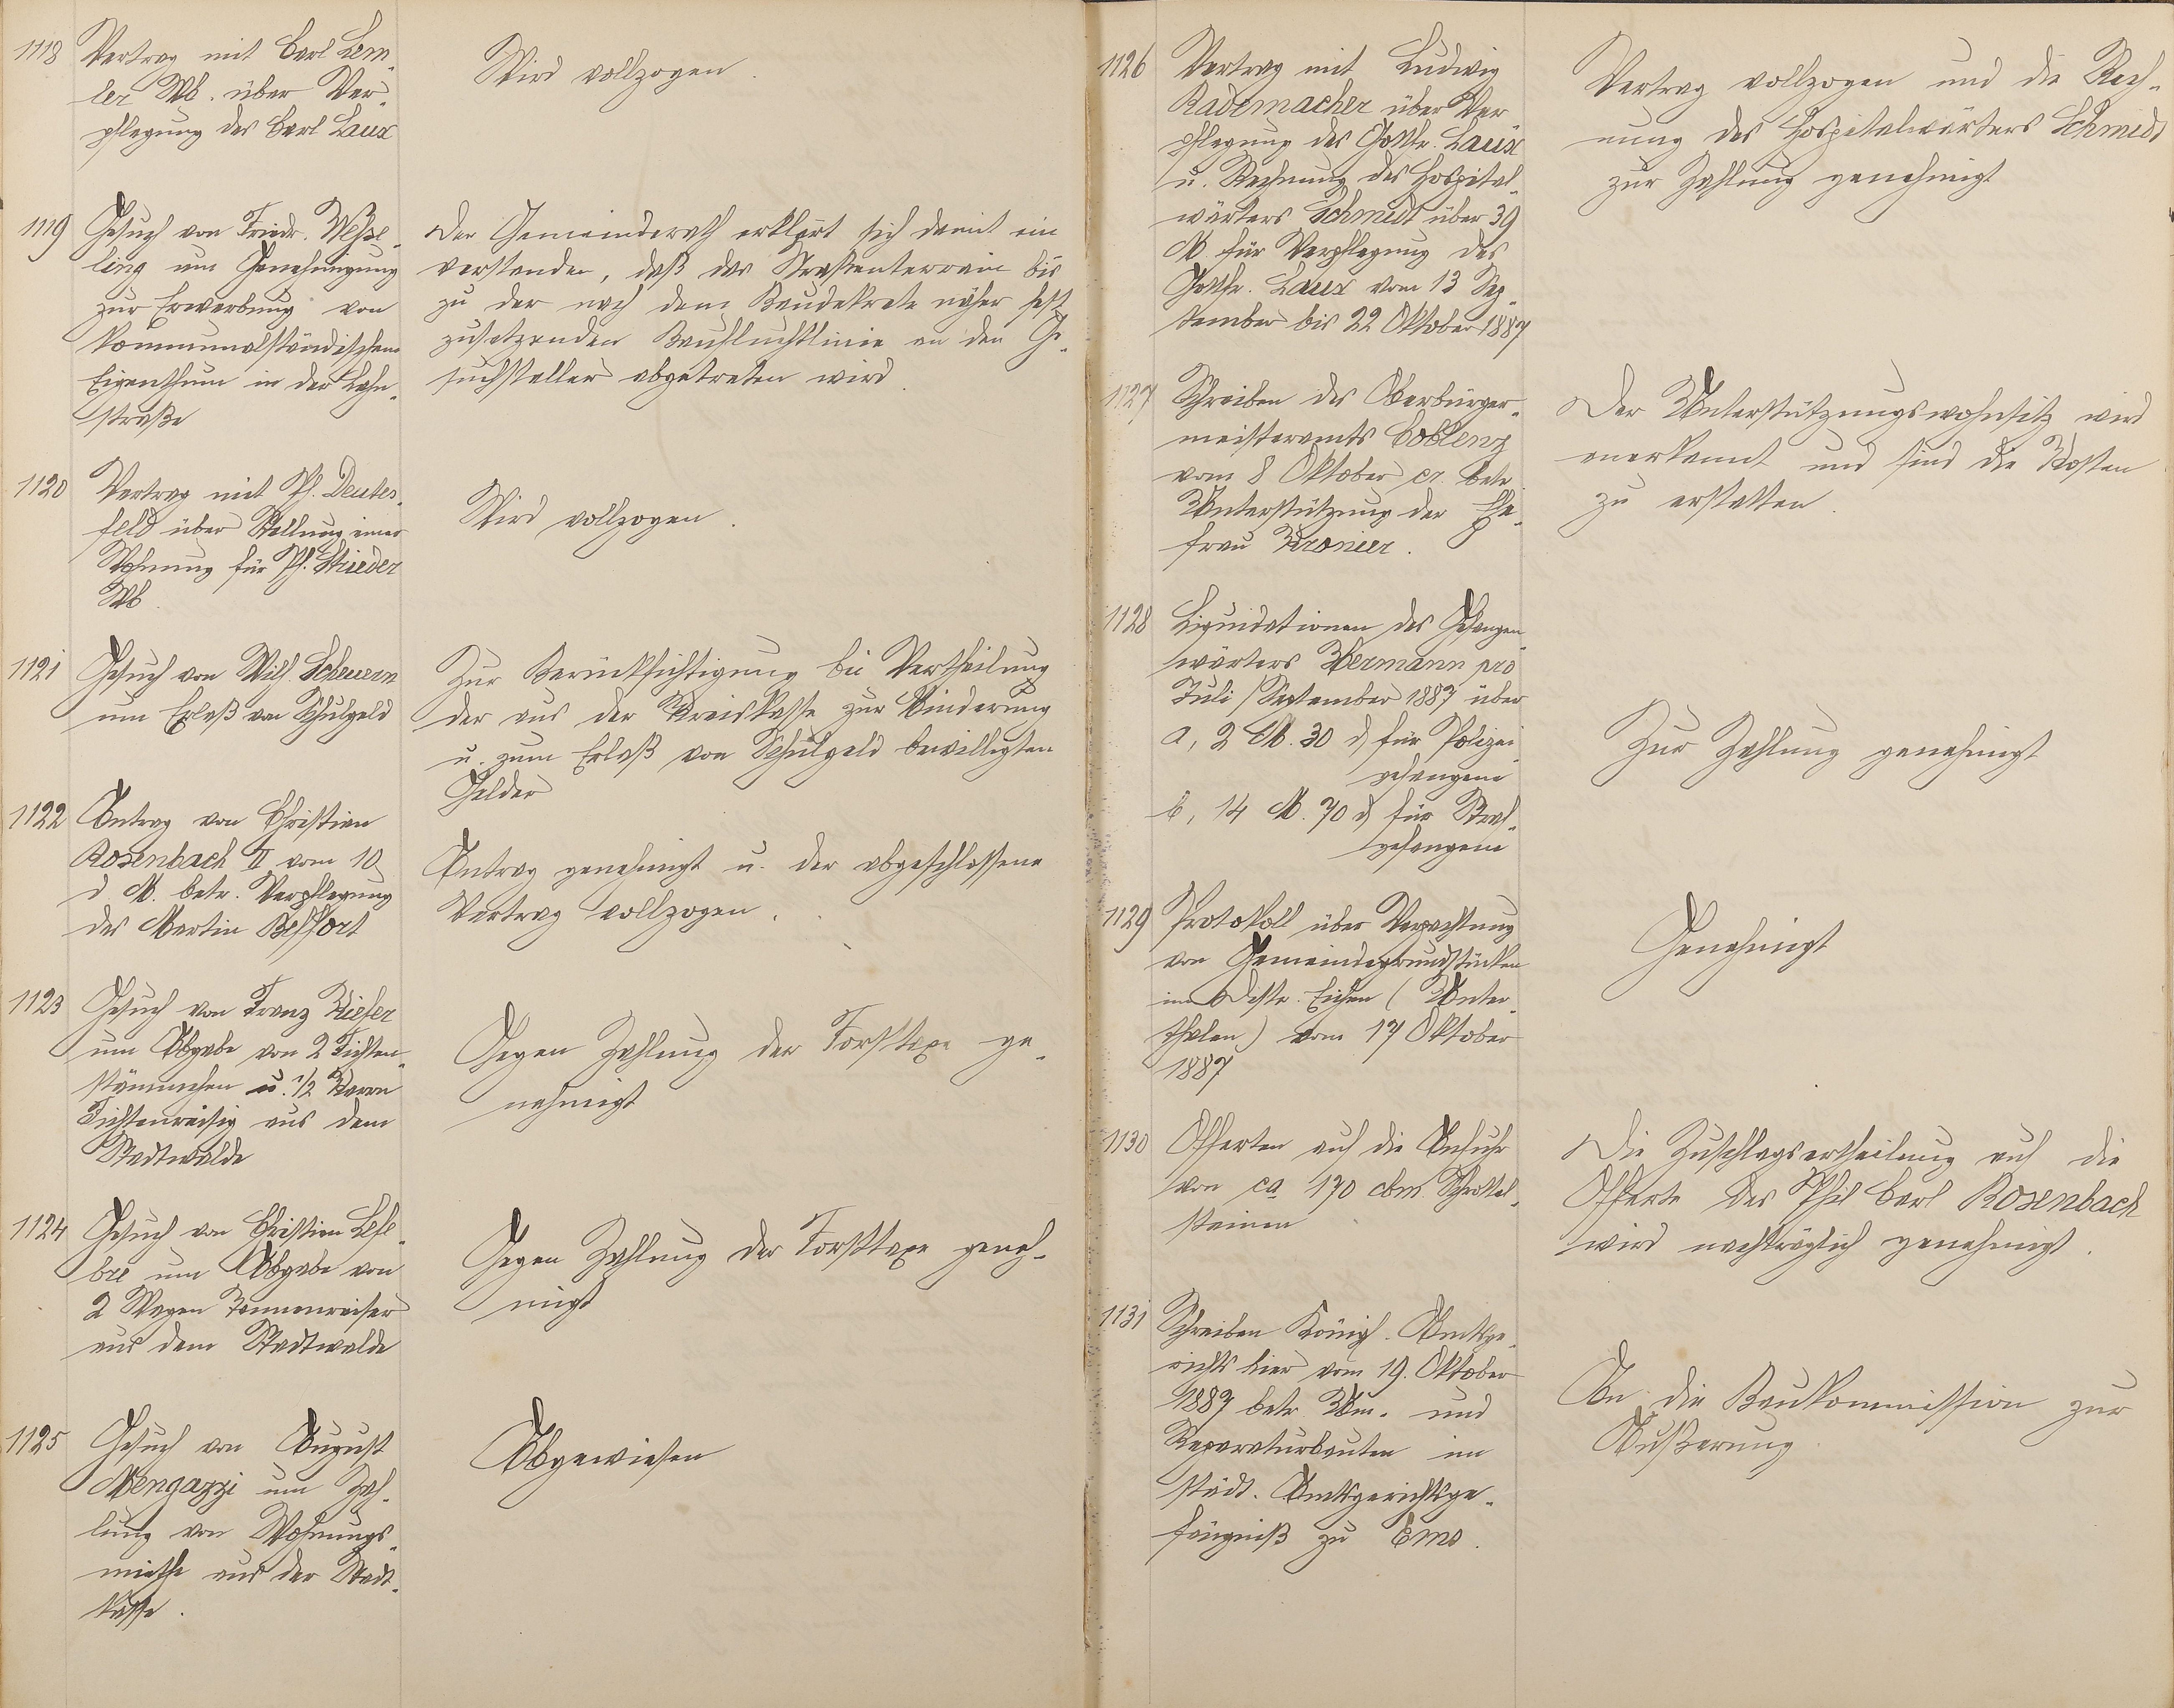 1118 Vertrag mit Carl Lem-
ler Wb. über Ver-
pflegung des Carl Laux
Wird vollzogen.
1119 Gesuch von Friedr. Weße-
ling um Genehmigung
zur Erwerbung von
kommunalständischem
Eigenthum in der Lahn-
straße
Der Gemeinderath erklärt sich damit ein
verstanden, daß das Straßenterrain bis
zu der nach dem Baudekrete näher fest
zusetzenden Baufluchtlinie an den Ge-
suchsteller abgetreten wird.
1120 Vertrag mit Ph. Deutes-
feld über Stellung einer
Wohnung für Ph. Strieder
Wb.
Wird vollzogen.
1121 Gesuch von Wilh. Scheuern
um Erlaß von Schulgeld
Zur Berücksichtigung bei Vertheilung
der aus der Kreiskasse zur Minderung
u. zum Erlaß von Schulgeld bewilligten
Gelder
1122 Antrag von Christian
Rosenbach II vom 10
d. M. betr. Verpflegung
des Martin Beffort
Antrag genehmigt u. der abgeschlossene
Vertrag vollzogen.
1123 Gesuch von Franz Kiefer
um Abgabe von 2 Fichten-
stämmchen u. 1/2 Karrn
Fichtenreisig aus dem
Stadtwalde
Gegen Zahlung der Forsttaxe ge-
nehmigt
1124 Gesuch von Christian Lefe-
bre um Abgabe von
2 Wagen Tannenreiser
aus dem Stadtwalde
Gegen Zahlung der Forsttaxe geneh-
migt
1125 Gesuch von August
Mengazzi um Zah-
lung von Wohnungs-
miethe aus der Stadt-
kasse.
Abgewiesen
1126 Vertrag mit Ludwig
Rademacher über Ver
pflegung des Gottfr. Laux
u. Rechnung des Hospital-
wärters Schmidt über 39
M. für Verpflegung des
Gottfr. Laux vom 13 Sep-
tember bis 22 Oktober 1887
Vertrag vollzogen und die Rech-
nung des Hospitalwärters Schmidt
zur Zahlung genehmigt
1127 Schreiben des Oberbürger-
meisteramts Coblenz
vom 8 Oktober cr. betr.
Unterstützung der Ehe-
frau Kronier.
Der Unterstützungswohnsitz wird
anerkannt und sind die Kosten
zu erstatten.
1128 Liquidationen des Gefangen
wärters Wermann pro
Juli/September 1887 über
a, 2 M. 30 d für Polizei
gefangene
b, 14 M. 70 d für Straf-
gefangene
Zur Zahlung genehmigt
1129 Protokoll über Verpachtung
von Gemeindegrundstücken
im Distr. Eichen (Unter
thalen) vom 17 Oktober
1887
Genehmigt
1130 Offerten auf die Anfuhr
von ca 170 cbm. Schrottel-
steinen
Die Zuschlagsertheilung auf die
Offerte des Phil Carl Rosenbach
wird nachträglich genehmigt.
1131 Schreiben Königl. Amtsge-
richts hier vom 19. Oktober
1887 betr. Um- und
Reparaturbauten im
städt. Amtsgerichtsge-
fängniß zu Ems.
An die Baukommission zur
Äußerung